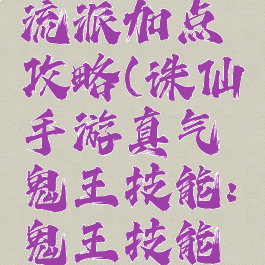 流派加点
攻略(诛仙
手游真气
鬼王技能:
鬼王技能